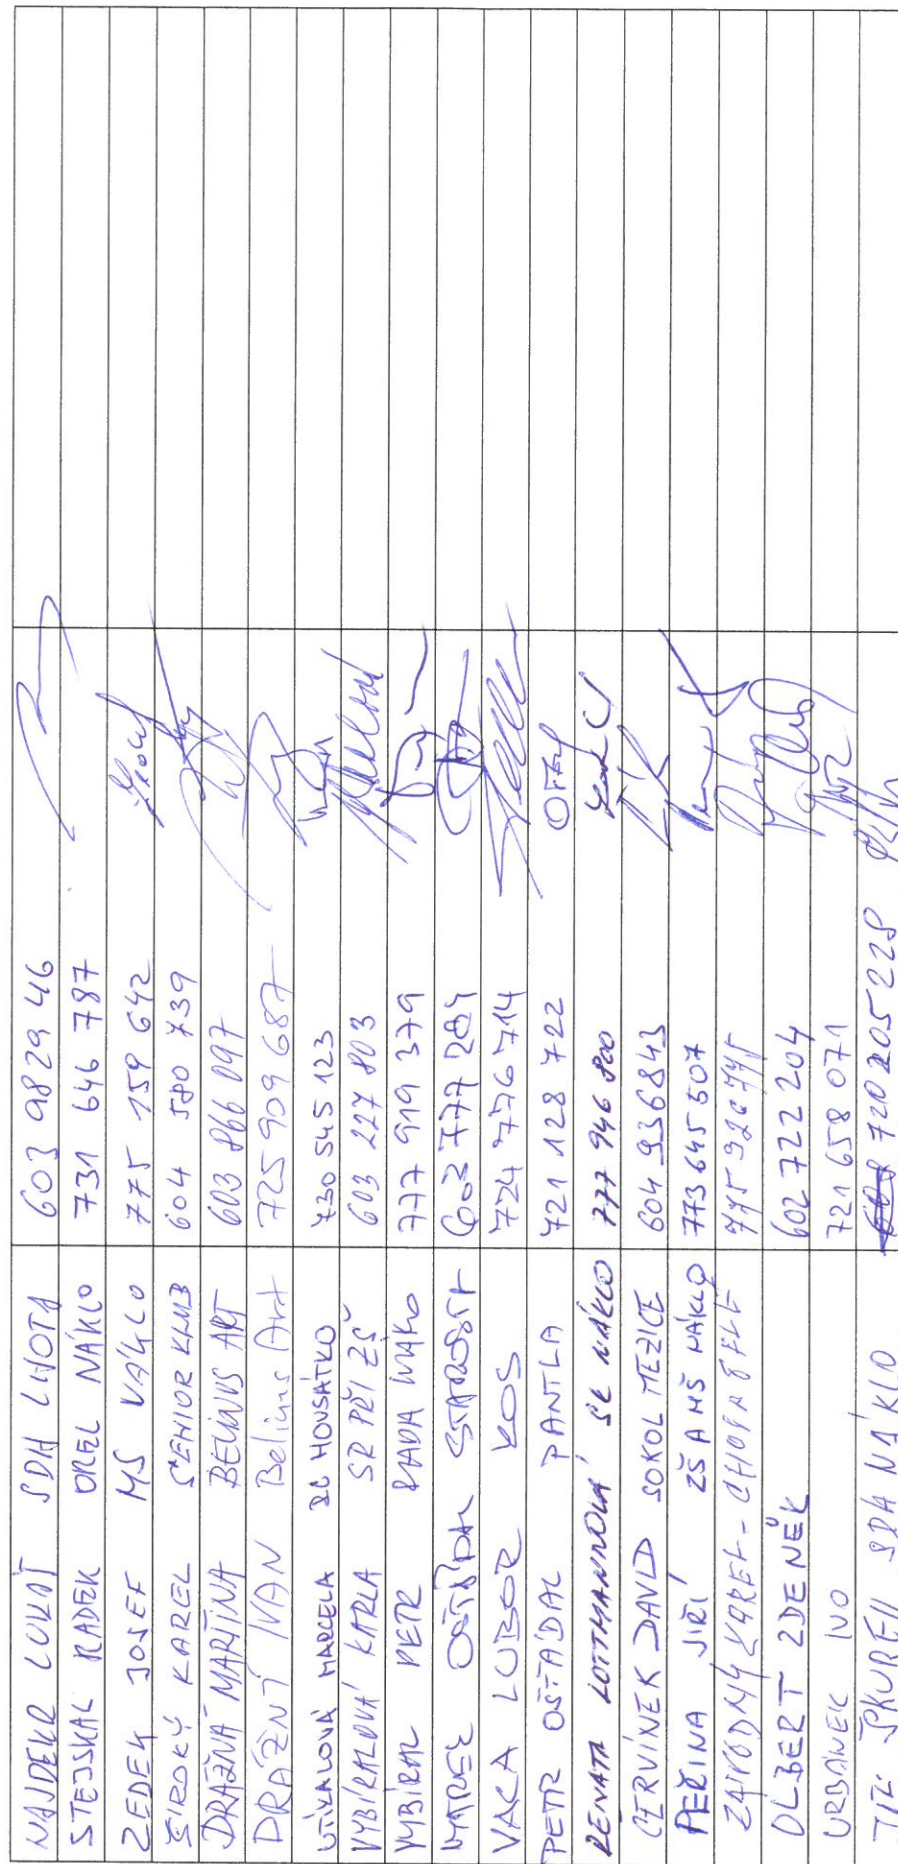 NAJDEKR LUKÁŠ SDH LHOTA 603 9829 46
STEJSKAL RADEK OREL NÁKLO 731 646 787
ZEDEK JOSEF MS NÁKLO 775 159 642
ŠIROKÝ KAREL SENIOR KLUB 604 580 739
DRAŽNÁ MARTINA BELINIS ART 603 866 097
DRAŽNÝ IVAN Belinis Art 725 909 687
MARCELA DC HOUSÁTKO 730 545 123
VYBÍRALOVÁ KARLA SR PŘI ZŠ 603 227 803
VYBÍRAL PETR RADA NÁKLO 777 919 379
MAREK OŠŤÁDAL STAROSTA 603 777 204
VACA LUBOR KOS 724 776 714
PETR OŠŤÁDAL PANTLA 721 128 722
RENATA LOTTMANNOVÁ SK NÁKLO 777 946 800
ČERVÍNEK DAVID SOKOL MEZICE 604 936843
PEŘINA JIŘÍ ZŠ A MŠ NÁKLO 773 645 507
ZÁVODNÝ KAREL - CHOVATELÉ
OLBERT ZDENĚK 602 722 204
URBÁNEK IVO 721 658 071
JIŘÍ SDH NÁKLO 720 205 228